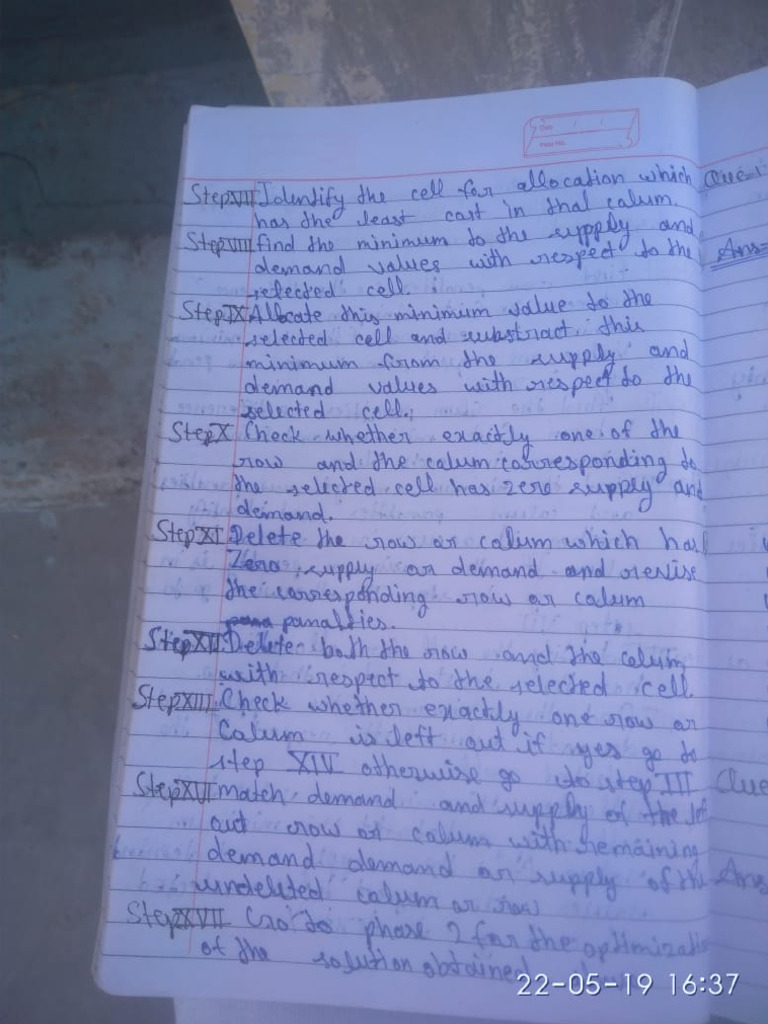 Date / /
Page No.
Step VII Identify the cell for allocation which
has the least cast in that calum.
Step VIII find the minimum to the supply and
demand values with respect to the
selected cell.
Step IX Allocate this minimum value to the
selected cell and substract this
minimum from the supply and
demand values with respect to the
selected cell.
Step X Check whether exactly one of the
row and the calum corresponding to
the selected cell has zero supply and
demand.
Step XI Delete the row or calum which has
Zero supply or demand and revise
the corresponding row or calum
panalties.
Step XII Delete both the row and the calum
with respect to the selected cell.
Step XIII Check whether exactly one row or
Calum is left out if yes go to
step XIV otherwise go to step III
Step XVI match demand and supply of the lef
out row or calum with remaining
demand demand or supply of the
undeleted calum or row
Step XVII Go to phase 2 for the optimizati
of the solution obtained
Que:-
Ans=
Que
Ans
22-05-19 16:37